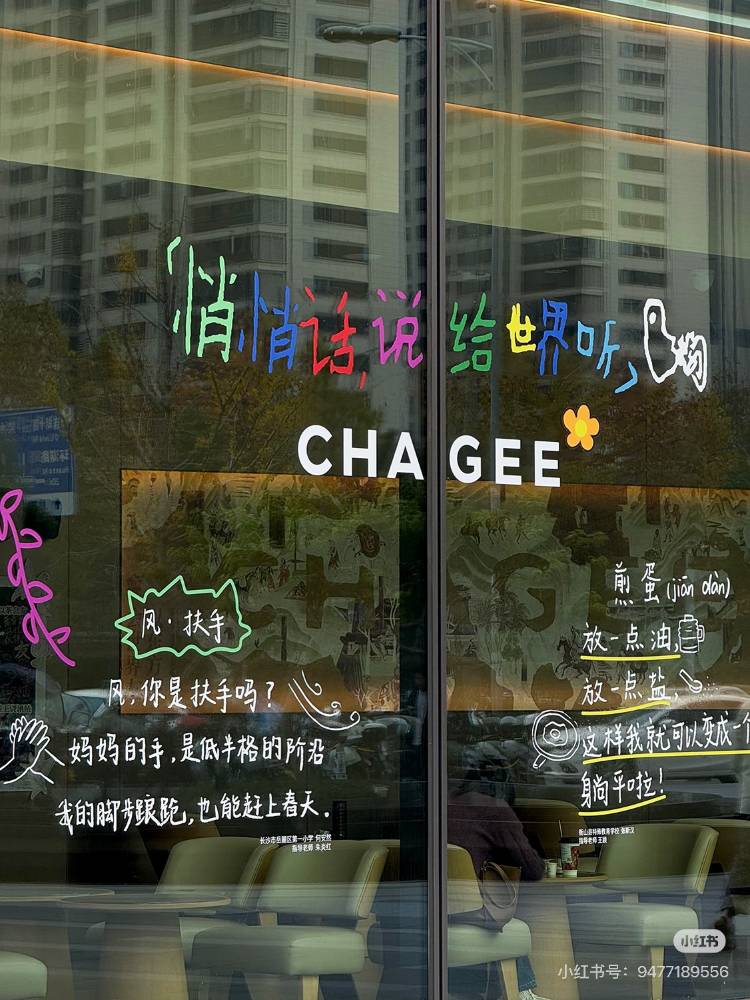 「悄悄话,说给世界听」
CHAGEE
风·扶手
风,你是扶手吗?
妈妈的手,是低半格的阶沿
我的脚步踉跄,也能赶上春天.
长沙市岳麓区第一小学 何安然
指导老师 朱炎红
煎蛋(jiān dàn)
放一点油,
放一点盐,
这样我就可以变成一个
身尚平啦!
衡山县特殊教育学校 张新汉
指导老师 王颖
小红书
小红书号:9477189556